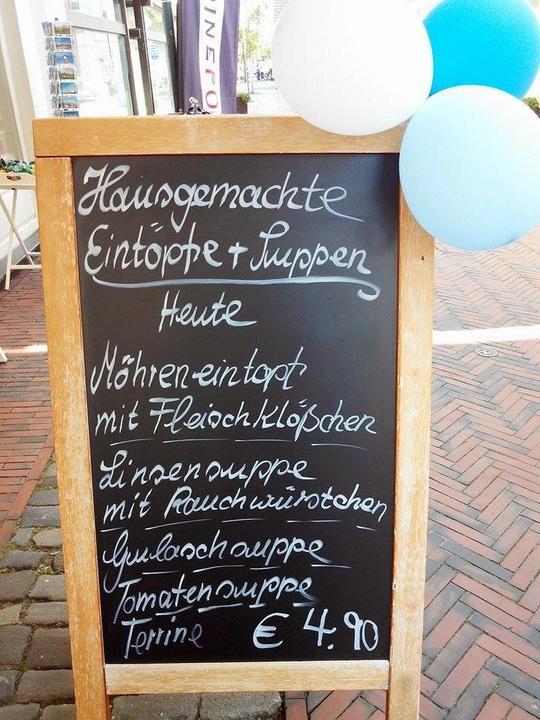 INEPO
Hausgemachte
Eintöpfe + Suppen
Heute
Möhreneintopf
mit Fleischklößchen
Linsensuppe
mit Rauchwürstchen
Gulaschsuppe
Tomatensuppe
Terrine € 4.90